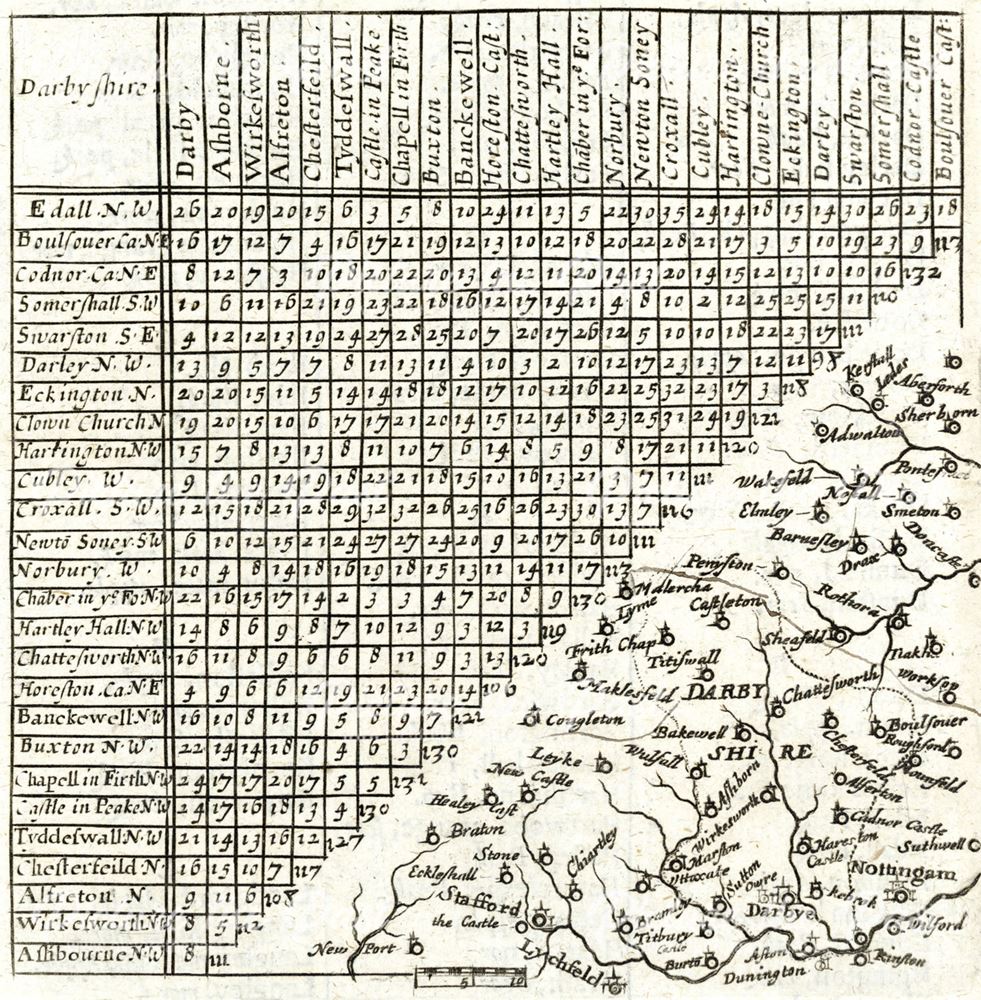 Darbyſhire.
Darby
Aſhborne.
Wirkeſworth
Alfreton
Cheſterfeild.
Tyddeſwall.
Caſtle in Peake
Chapell in Firth
Buxton.
Banckewell
Horeſton Caſt.
Chatteſworth.
Hartley Hall.
Chaber in yᵉ For:
Norbury.
Newton Soney
Croxall.
Cubley.
Hartington.
Clowne Church.
Eckington.
Darley.
Swarſton.
Somerſhall
Codnor Caſtle
Boulſouer Caſt:
Edall. N. W. 26 20 19 20 15 6 3 5 8 10 24 11 13 5 22 30 35 24 14 18 15 14 30 26 23 18
Boulſouer Ca: N: E 16 17 12 7 4 16 17 21 19 12 13 10 12 18 20 22 28 21 17 3 5 10 19 23 9 113
Codnor. Ca: N. E 8 12 7 3 10 18 20 22 20 13 4 12 11 20 14 13 20 14 15 12 13 10 10 16 132
Somerſhall. S. W 10 6 11 16 21 19 23 22 18 16 12 17 14 21 4 8 10 2 12 25 25 15 11 110
Swarſton S. E. 4 12 12 13 19 24 27 28 25 20 7 20 17 26 12 5 10 10 18 22 23 17 111
Darley N. W. 13 9 5 7 7 8 11 13 11 4 10 3 2 10 12 17 23 13 7 12 11 98
Eckington N. 20 20 15 11 5 14 14 18 18 12 17 10 12 16 22 25 32 23 17 3 118
Clown Church N 19 20 15 10 6 17 17 21 20 14 15 12 14 18 23 25 31 24 19 121
Hartington N. W 15 7 8 13 13 8 11 10 7 6 14 8 5 9 8 17 21 11 120
Cubley. W. 9 4 9 14 19 18 22 21 18 15 10 16 13 21 3 7 11 111
Croxall. S. W. 12 15 18 21 28 29 32 32 26 25 16 26 23 30 13 7 116
Newtō Soney. S. W 6 10 12 15 21 24 27 27 24 20 9 20 17 26 10 111
Norbury. W. 10 4 8 14 18 16 19 18 15 13 11 14 11 17 113
Chaber in yᵉ Fo. N. W 22 16 15 17 14 2 3 3 4 7 20 8 9 130
Hartley Hall N. W 14 8 6 9 8 7 10 12 9 3 12 3 119
Chatteſworth N. W. 16 11 8 9 6 6 8 11 9 3 13 120
Horeſton. Ca: N. E 4 9 6 6 12 19 21 23 20 14 106
Banckewell N. W 16 10 8 11 9 5 8 9 7 121
Buxton N. W. 22 14 14 18 16 4 6 3 130
Chapell in Firth N W 24 17 17 20 17 5 5 131
Caſtle in Peake N. W 24 17 16 18 13 4 130
Tyddeſwall N. W 21 14 13 16 12 127
Cheſterfeild N. 16 15 10 7 117
Alfreton. N. 9 11 6 108
Wirkeſworth N W 8 5 112
Aſhbourne N. W 8 111
Kerſtall
Ledes
Aberforth
Sherborn
Adwalton
Pontefract
Wakefeld
Noſtall
Smeton
Elmley
Barneſley
Drax
Doncaſter
Penyſton
Malercha
Rothora
Lyme
Caſtleton
Sheafeld
Frith Chap
Titiſwall
workſop
Maklesfeld
DARBY
Chatteſworth
Congleton
Bakewell
Boulſouer
Cheſterfeld
Roughford
SHIRE
Wulfall
Leyke
New Caſtle
Aſhborn
Alferton
Healey Caſt
Wirkeſworth
Codnor Caſtle
Braton
Hareſton Caſtle
Suthwell
Stone
Chiartley
Marſton
Eccleſhall
Vttoxate
Sutton
Nottingam
Stafford
the Caſtle
Darbye
Bramly
Wilford
Titbury
New Port
Lychfeld
Burtō
Aſton
Dunington
Kinſton
5 10